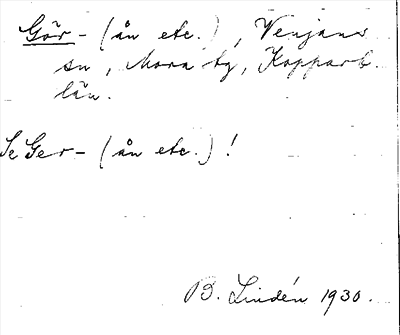 Gör- (ån etc.), Venjans
sn, Mora tg, Kopparb.
län.
Se Ger- (ån etc.)!
B. Lindén 1930.